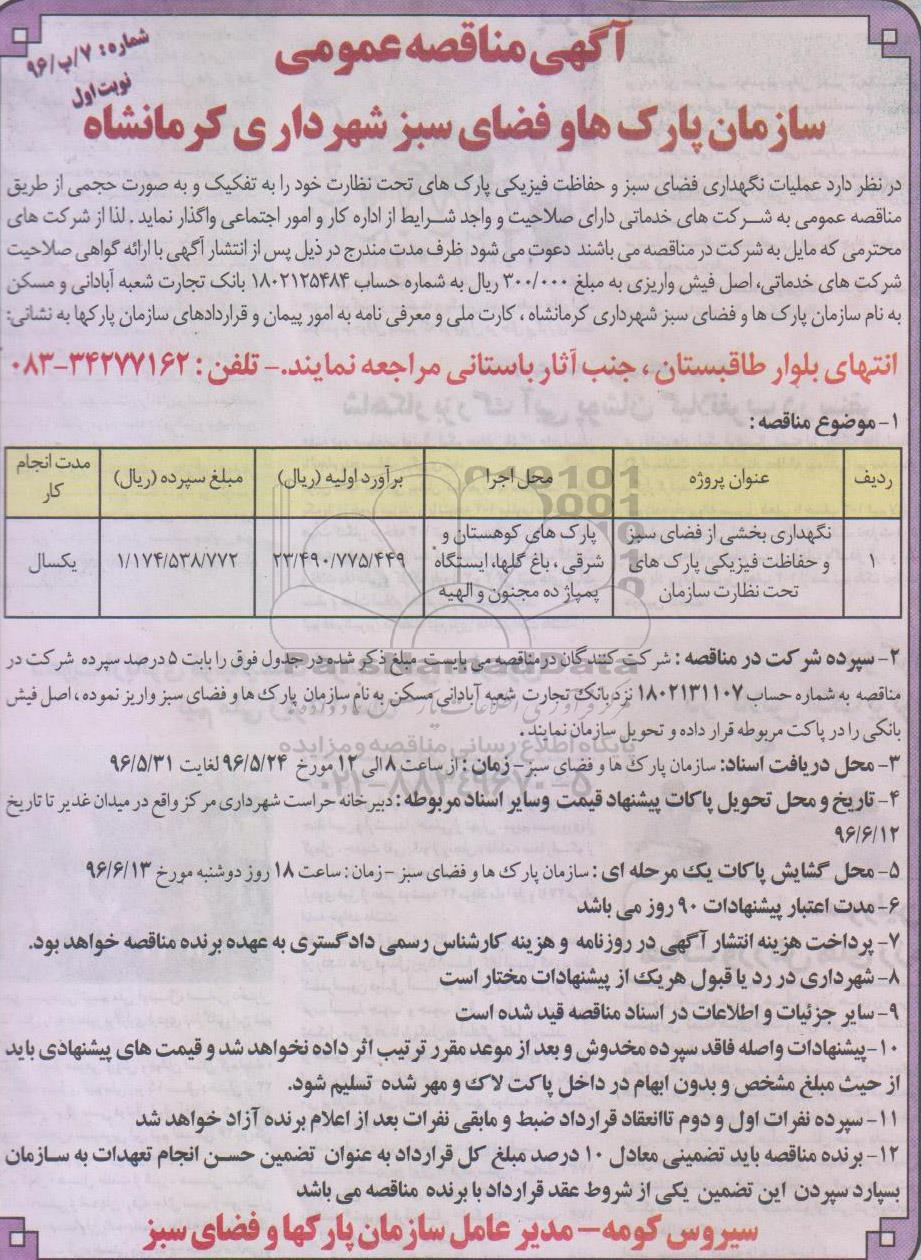 آگهی مناقصه عمومی
شماره: ۷/پ/۹۶
نوبت اول
سازمان پارک هاو فضای سبز شهرداری کرمانشاه
در نظر دارد عملیات نگهداری فضای سبز و حفاظت فیزیکی پارک های تحت نظارت خود را به تفکیک و به صورت حجمی از طریق
مناقصه عمومی به شرکت های خدماتی دارای صلاحیت و واجد شرایط از اداره کار و امور اجتماعی واگذار نماید . لذا از شرکت های
محترمی که مایل به شرکت در مناقصه می باشند دعوت می شود ظرف مدت مندرج در ذیل پس از انتشار آگهی با ارائه گواهی صلاحیت
شرکت های خدماتی، اصل فیش واریزی به مبلغ ۳۰۰/۰۰۰ ریال به شماره حساب ۱۸۰۲۱۲۵۴۸۴ بانک تجارت شعبه آبادانی و مسکن
به نام سازمان پارک ها و فضای سبز شهرداری کرمانشاه ، کارت ملی و معرفی نامه به امور پیمان و قراردادهای سازمان پارکها به نشانی:
انتهای بلوار طاقبستان ، جنب آثار باستانی مراجعه نمایند.- تلفن : ۳۴۲۷۷۱۶۲-۰۸۳
۱- موضوع مناقصه :
ردیف عنوان پروژه محل اجرا برآورد اولیه (ریال) مبلغ سپرده (ریال) مدت انجام کار
۱ نگهداری بخشی از فضای سبز و حفاظت فیزیکی پارک های تحت نظارت سازمان پارک های کوهستان و شرقی ، باغ گلها، ایستگاه پمپاژ ده مجنون و الهیه ۲۳/۴۹۰/۷۷۵/۴۴۹ ۱/۱۷۴/۵۳۸/۷۷۲ یکسال
۲- سپرده شرکت در مناقصه : شرکت کنندگان در مناقصه می بایست مبلغ ذکر شده در جدول فوق را بابت ۵ درصد سپرده شرکت در
مناقصه به شماره حساب ۱۸۰۲۱۳۱۱۰۷ نزد بانک تجارت شعبه آبادانی مسکن به نام سازمان پارک ها و فضای سبز واریز نموده ، اصل فیش
بانکی را در پاکت مربوطه قرار داده و تحویل سازمان نمایند .
۳- محل دریافت اسناد: سازمان پارک ها و فضای سبز - زمان : از ساعت ۸ الی ۱۲ مورخ ۹۶/۵/۲۴ لغایت ۹۶/۵/۳۱
۴- تاریخ و محل تحویل پاکات پیشنهاد قیمت وسایر اسناد مربوطه : دبیرخانه حراست شهرداری مرکز واقع در میدان غدیر تا تاریخ
۹۶/۶/۱۲
۵- محل گشایش پاکات یک مرحله ای : سازمان پارک ها و فضای سبز - زمان : ساعت ۱۸ روز دوشنبه مورخ ۹۶/۶/۱۳
۶- مدت اعتبار پیشنهادات ۹۰ روز می باشد
۷- پرداخت هزینه انتشار آگهی در روزنامه و هزینه کارشناس رسمی دادگستری به عهده برنده مناقصه خواهد بود.
۸- شهرداری در رد یا قبول هر یک از پیشنهادات مختار است
۹- سایر جزئیات و اطلاعات در اسناد مناقصه قید شده است
۱۰- پیشنهادات واصله فاقد سپرده مخدوش و بعد از موعد مقرر ترتیب اثر داده نخواهد شد و قیمت های پیشنهادی باید
از حیث مبلغ مشخص و بدون ابهام در داخل پاکت لاک و مهر شده تسلیم شود.
۱۱- سپرده نفرات اول و دوم تاانعقاد قرارداد ضبط و مابقی نفرات بعد از اعلام برنده آزاد خواهد شد
۱۲- برنده مناقصه باید تضمینی معادل ۱۰ درصد مبلغ کل قرارداد به عنوان تضمین حسن انجام تعهدات به سازمان
بسپارد سپردن این تضمین یکی از شروط عقد قرارداد با برنده مناقصه می باشد
سیروس کومه - مدیر عامل سازمان پارکها و فضای سبز
ParsNamadData
پایگاه اطلاع رسانی مناقصه و مزایده